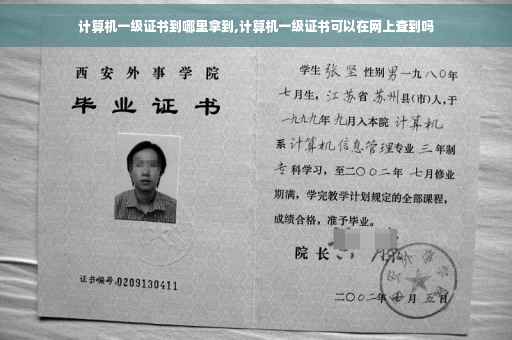 计算机一级证书到哪里拿到,计算机一级证书可以在网上查到吗
西安外事学院
毕业证书
证书编号:0209130411
学生 张坚 性别 男 一九八〇年
七月生, 江苏省 苏州 县(市)人,于
一九九九年 九月入本院 计算机
系 计算机信息管理 专业 三 年制
专 科学习,至二〇〇二年 七月修业
期满,学完教学计划规定的全部课程,
成绩合格,准予毕业。
院长
二〇〇二年 七 月 五 日